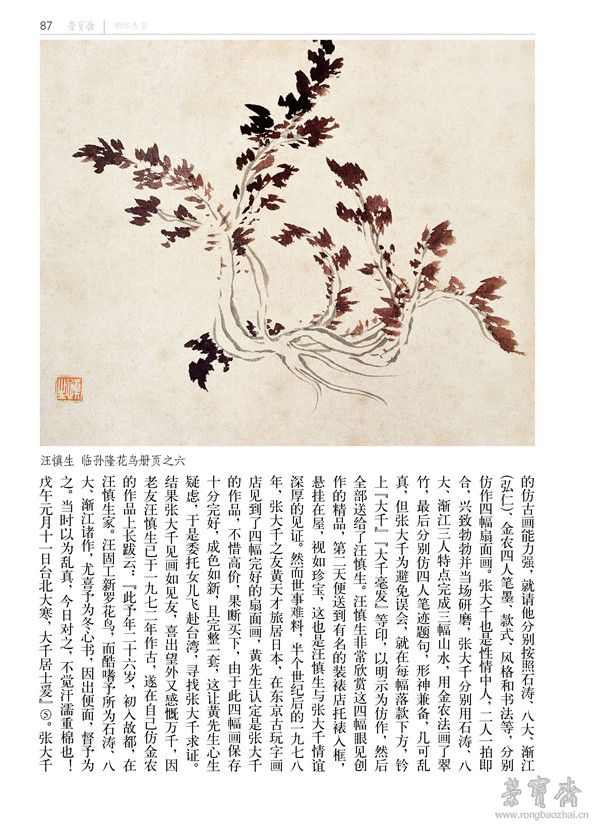 87
荣宝斋
物华天宝
汪慎生 临孙隆花鸟册页之六
的仿古画能力强，就请他分别按照石涛、八大、渐江
（弘仁）、金农四人笔墨、款式、风格和书法等，分别
仿作四幅扇面画。张大千也是性情中人，二人一拍即
合，兴致勃勃并当场研磨，张大千分别用石涛、八
大、渐江三人特点完成三幅山水，用金农法画了翠
竹，最后分别仿四人笔迹题句，形神兼备，几可乱
真，但张大千为避免误会，就在每幅落款下方，钤
上『大千』『大千毫发』等印，以明示为仿作，然后
全部送给了汪慎生。汪慎生非常欣赏这四幅眼见创
作的精品，第二天便送到有名的装裱店托裱入框，
悬挂在屋，视如珍宝，这也是汪慎生与张大千情谊
深厚的见证。然而世事难料，半个世纪后的一九七八
年，张大千之友黄天才旅居日本，在东京古玩字画
店见到了四幅完好的扇面画，黄先生认定是张大千
的作品，不惜高价，果断买下，由于此四幅画保存
十分完好，成色如新，且完整一套，这让黄先生心生
疑虑，于是委托女儿飞赴台湾，寻找张大千求证。
结果张大千见画如见友，喜出望外又感慨万千，因
老友汪慎生已于一九七二年作古，遂在自己仿金农
的作品上长跋云：『此予年二十六岁，初入故都，在
汪慎生家。汪固工新罗花鸟，而酷嗜予所为石涛、八
大、渐江诸作，尤喜予为冬心书，因出便面，督予为
之。当时以为乱真，今日对之，不觉汗濡重棉也！
戊午元月十一日台北大寒，大千居士爰』⑤。张大千
荣宝斋
www.rongbaozhai.cn